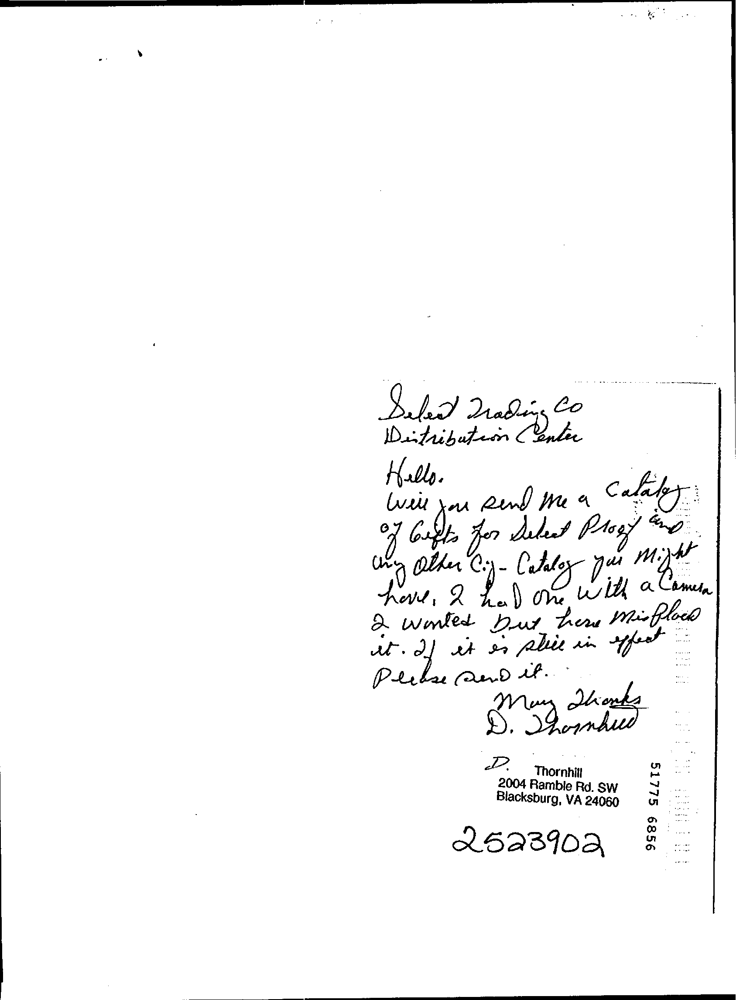 Select Trading Co
Distribution Center
Hello.
Will you send me a Catalog
of Gifts for Select Proof and
any other Cig- Catalog you might
have, I had one with a Camera
I wanted but have misplaced
it. If it is still in effect
Please send it.
Many Thanks
D. Thornhill
D. Thornhill
2004 Ramble Rd. SW
Blacksburg, VA 24060
2523902
51775 6856